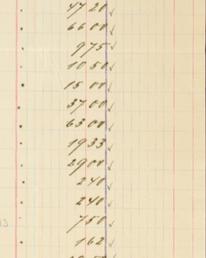 47 20 ✓
66 00 ✓
9 75 ✓
10 50 ✓
15 00 ✓
37 00 ✓
63 00 ✓
19 33 ✓
29 00 ✓
2 40 ✓
2 40 ✓
7 50 ✓
1 62 ✓